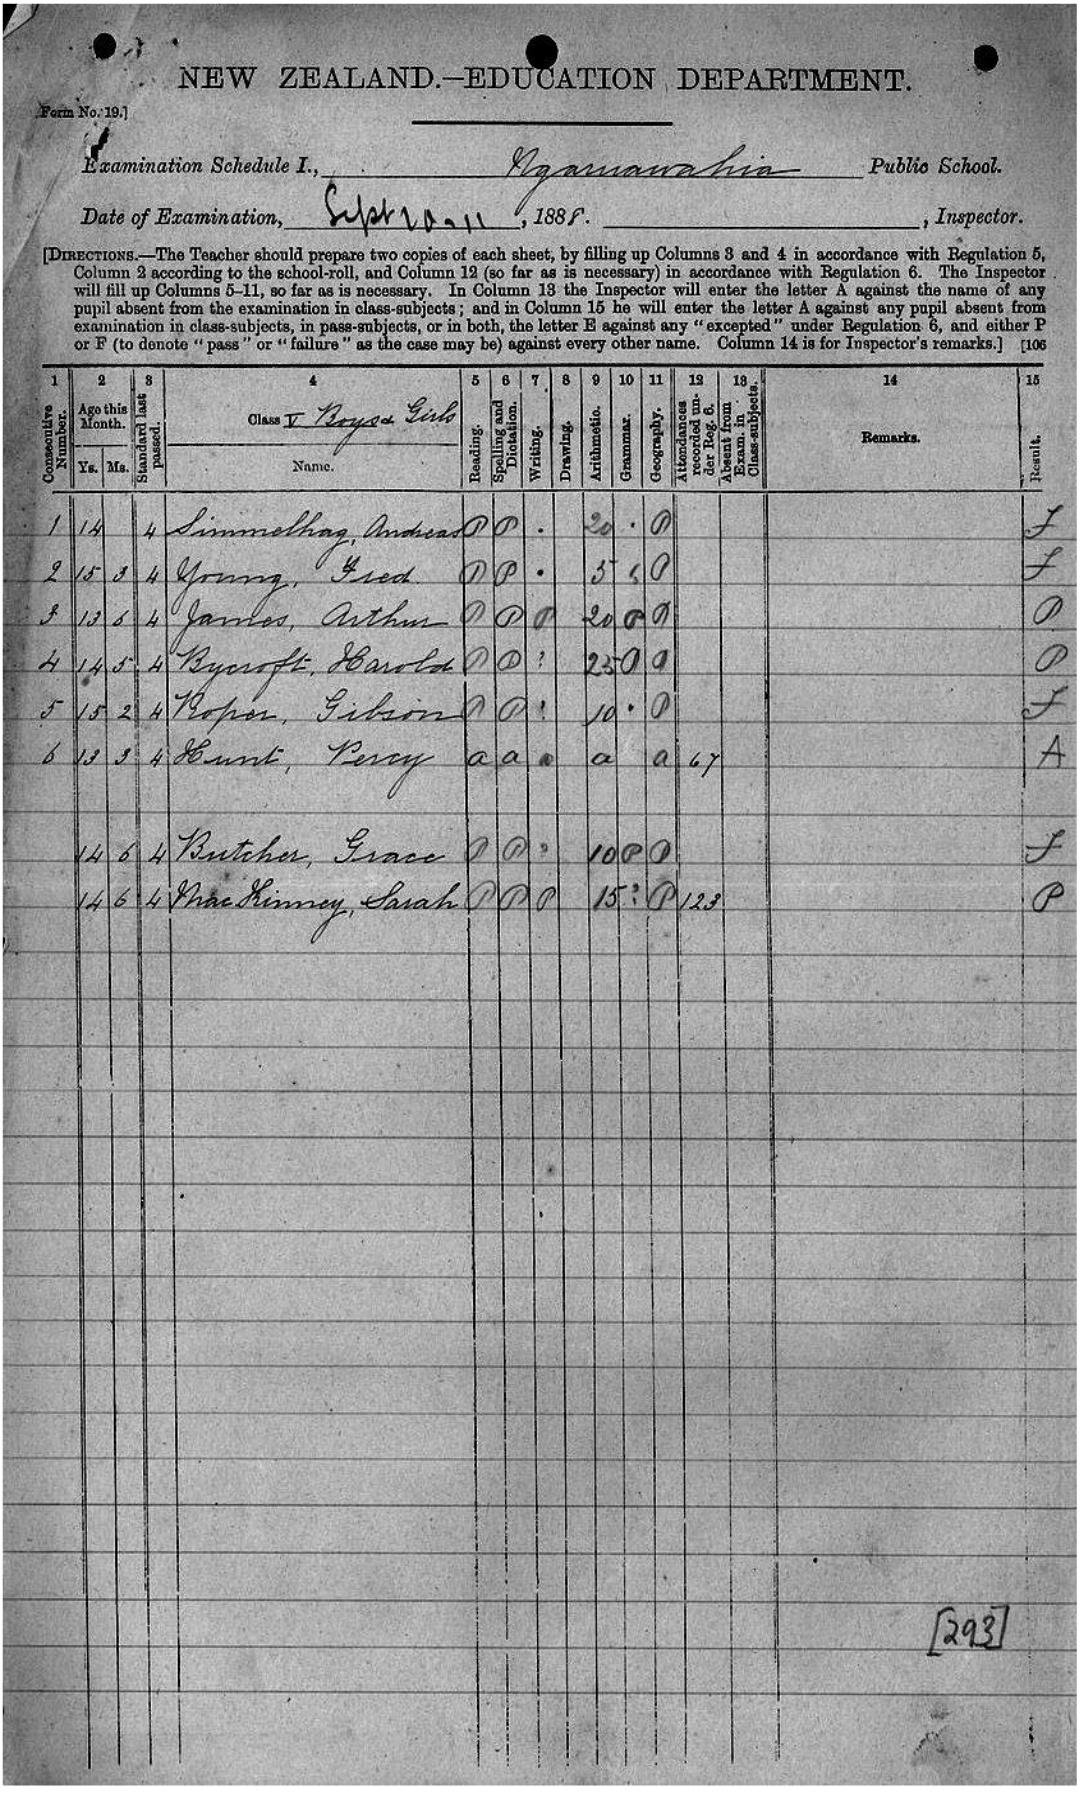 NEW ZEALAND.—EDUCATION DEPARTMENT.
Form No. 19.]
Examination Schedule I., Ngaruawahia Public School.
Date of Examination, Sept 10-11, 1888. , Inspector.
[DIRECTIONS.—The Teacher should prepare two copies of each sheet, by filling up Columns 3 and 4 in accordance with Regulation 5,
Column 2 according to the school-roll, and Column 12 (so far as is necessary) in accordance with Regulation 6. The Inspector
will fill up Columns 5–11, so far as is necessary. In Column 13 the Inspector will enter the letter A against the name of any
pupil absent from the examination in class-subjects; and in Column 15 he will enter the letter A against any pupil absent from
examination in class-subjects, in pass-subjects, or in both, the letter E against any "excepted" under Regulation 6, and either P
or F (to denote "pass" or "failure" as the case may be) against every other name. Column 14 is for Inspector's remarks.] [106
1 2 3 4 5 6 7 8 9 10 11 12 13 14 15
Consecutive Number. Age this Month. Ys. Ms. Standard last passed. Class V Boys & Girls Name. Reading. Spelling and Dictation. Writing. Drawing. Arithmetic. Grammar. Geography. Attendances recorded under Reg. 6. Absent from Exam. in Class-subjects. Remarks. Result.
1 14 4 Simmelhag, Andreas P P . 20 . P F
2 15 3 4 Young, Fred P P . 5 P F
3 13 6 4 James, Arthur P P P 20 P P P
4 14 5 4 Bycroft, Harold P P ? 25 P P P
5 15 2 4 Roper, Gibson P P ! 10 . P F
6 13 3 4 Hunt, Percy a a a a a 67 A
14 6 4 Butcher, Grace P P ? 10 P P F
14 6 4 MacKinney, Sarah P P P 15 ? P 123 P
[293]